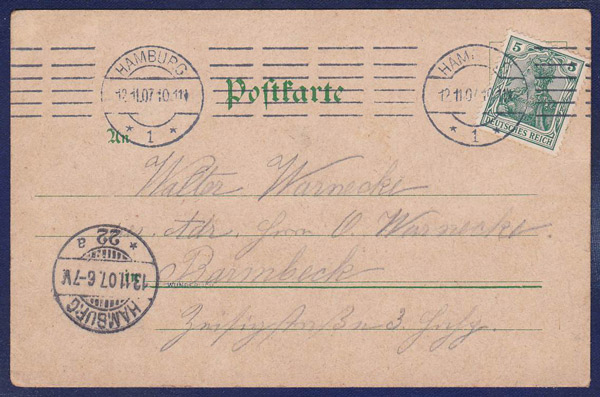 HAMBURG
12.11.07.10-11V
* 1 *
HAMBURG
12.11.07.10-11V
* 1 *
5 5
DEUTSCHES REICH
Postkarte
An
Walter Warnecke
Adr. Herrn O. Warnecke
in Barmbeck
Zeisigstraße 3.
HAMBURG
13.11.07.6-7V.
* 22 a